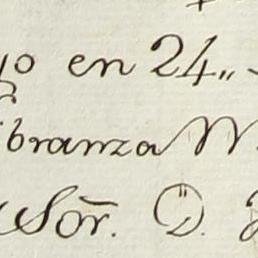 go en 24,,
branza N.
Sōr. D.